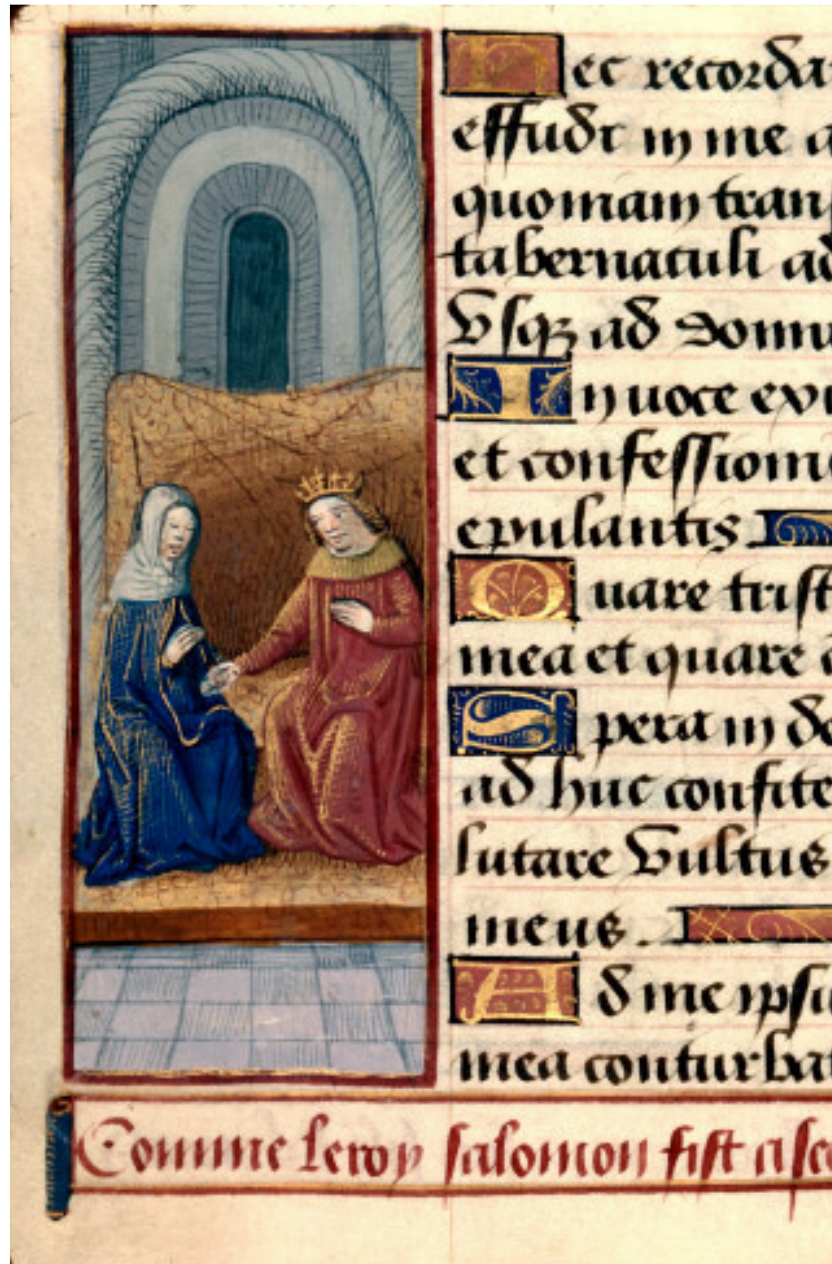 Hec recorda
effudi in me a
quoniam tran
tabernaculi ad
Usqz ad domu
In uoce exu
et confessioni
epulantis.
Quare trist
mea et quare
Spera in de
ad huc confite
lutare Vultus
meus.
Ad me ipsu
mea conturba
Comme le roy salomon fist a se